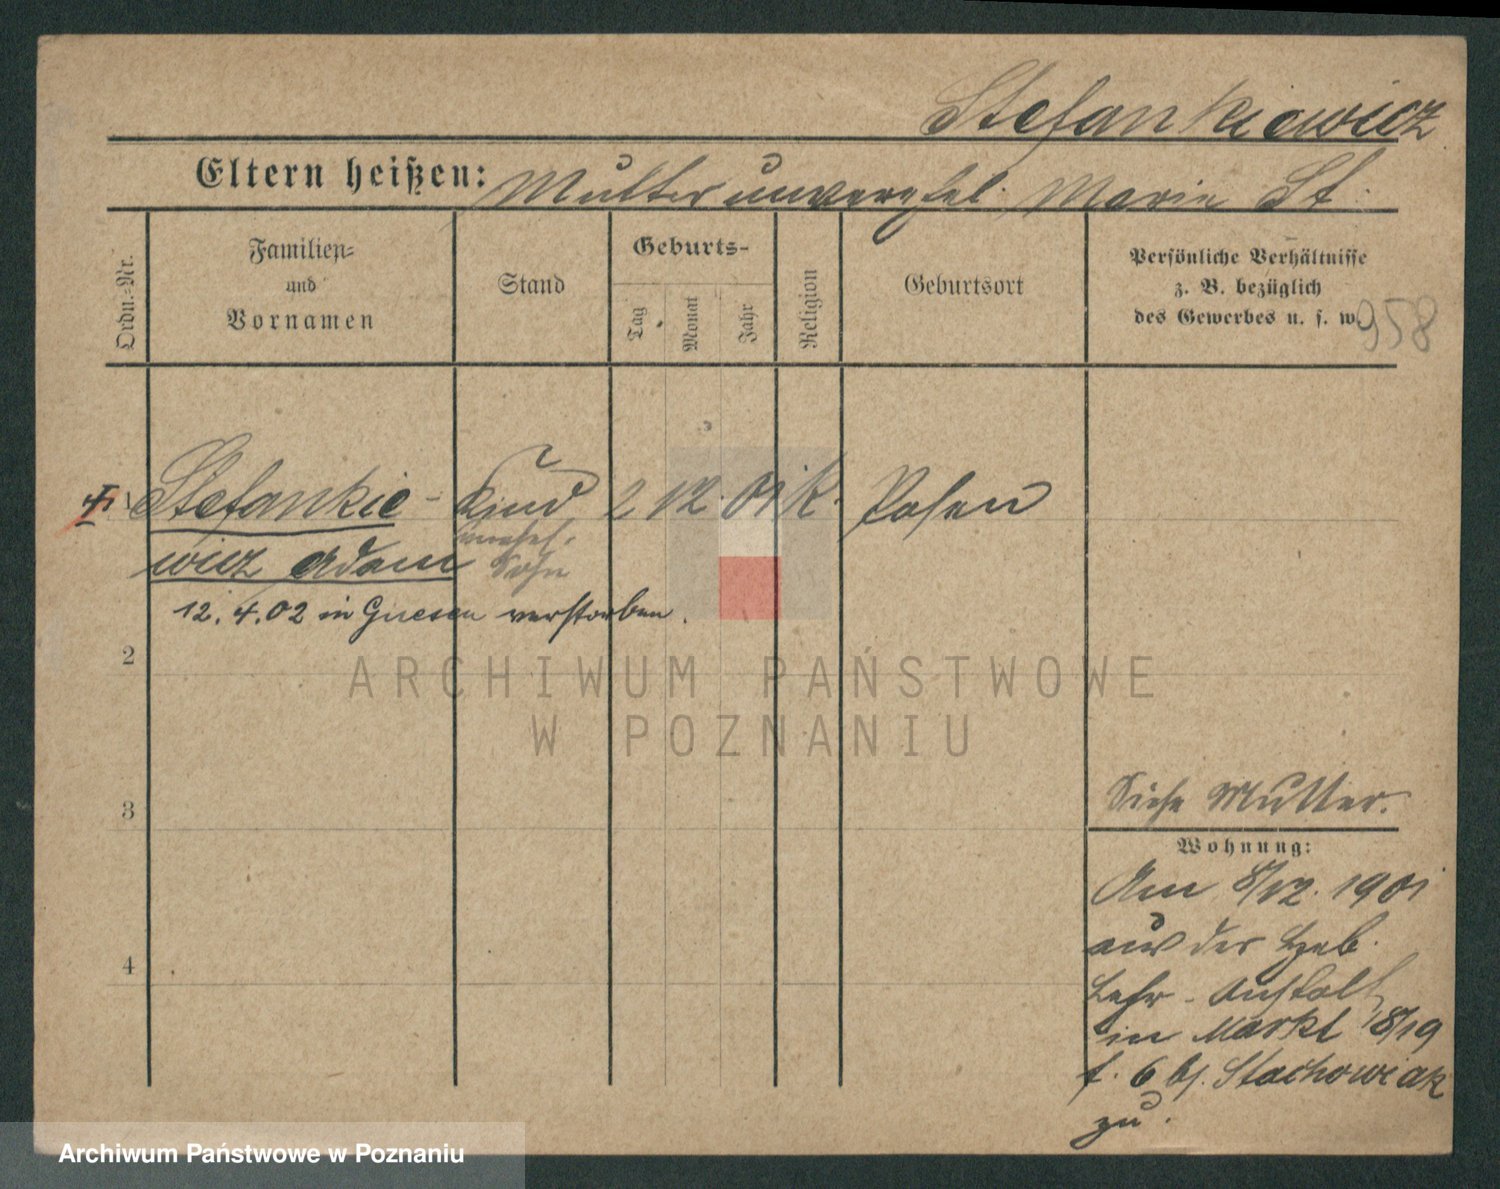 Stefankiewicz
Eltern heißen: Mutter unverehel. Marie St.
Ordn.-Nr.
Familien-
und
Vornamen
Stand
Geburts-
Tag
Monat
Jahr
Religion
Geburtsort
Persönliche Verhältnisse
z. B. bezüglich
des Gewerbes u. s. w.
958
1 Stefankie- Kind 2 12. 01 K. Posen
unehel.
wicz Adam Sohn
12. 4. 02 in Gnesen verstorben.
2
ARCHIWUM PAŃSTWOWE
W POZNANIU
3
Siehe Mutter.
Wohnung:
Am 8/12. 1901
aus der Heb.
4
Lehr-Anstalt
in Markt 18/19
f. 6 bj. Stachowiak
zu.
Archiwum Państwowe w Poznaniu